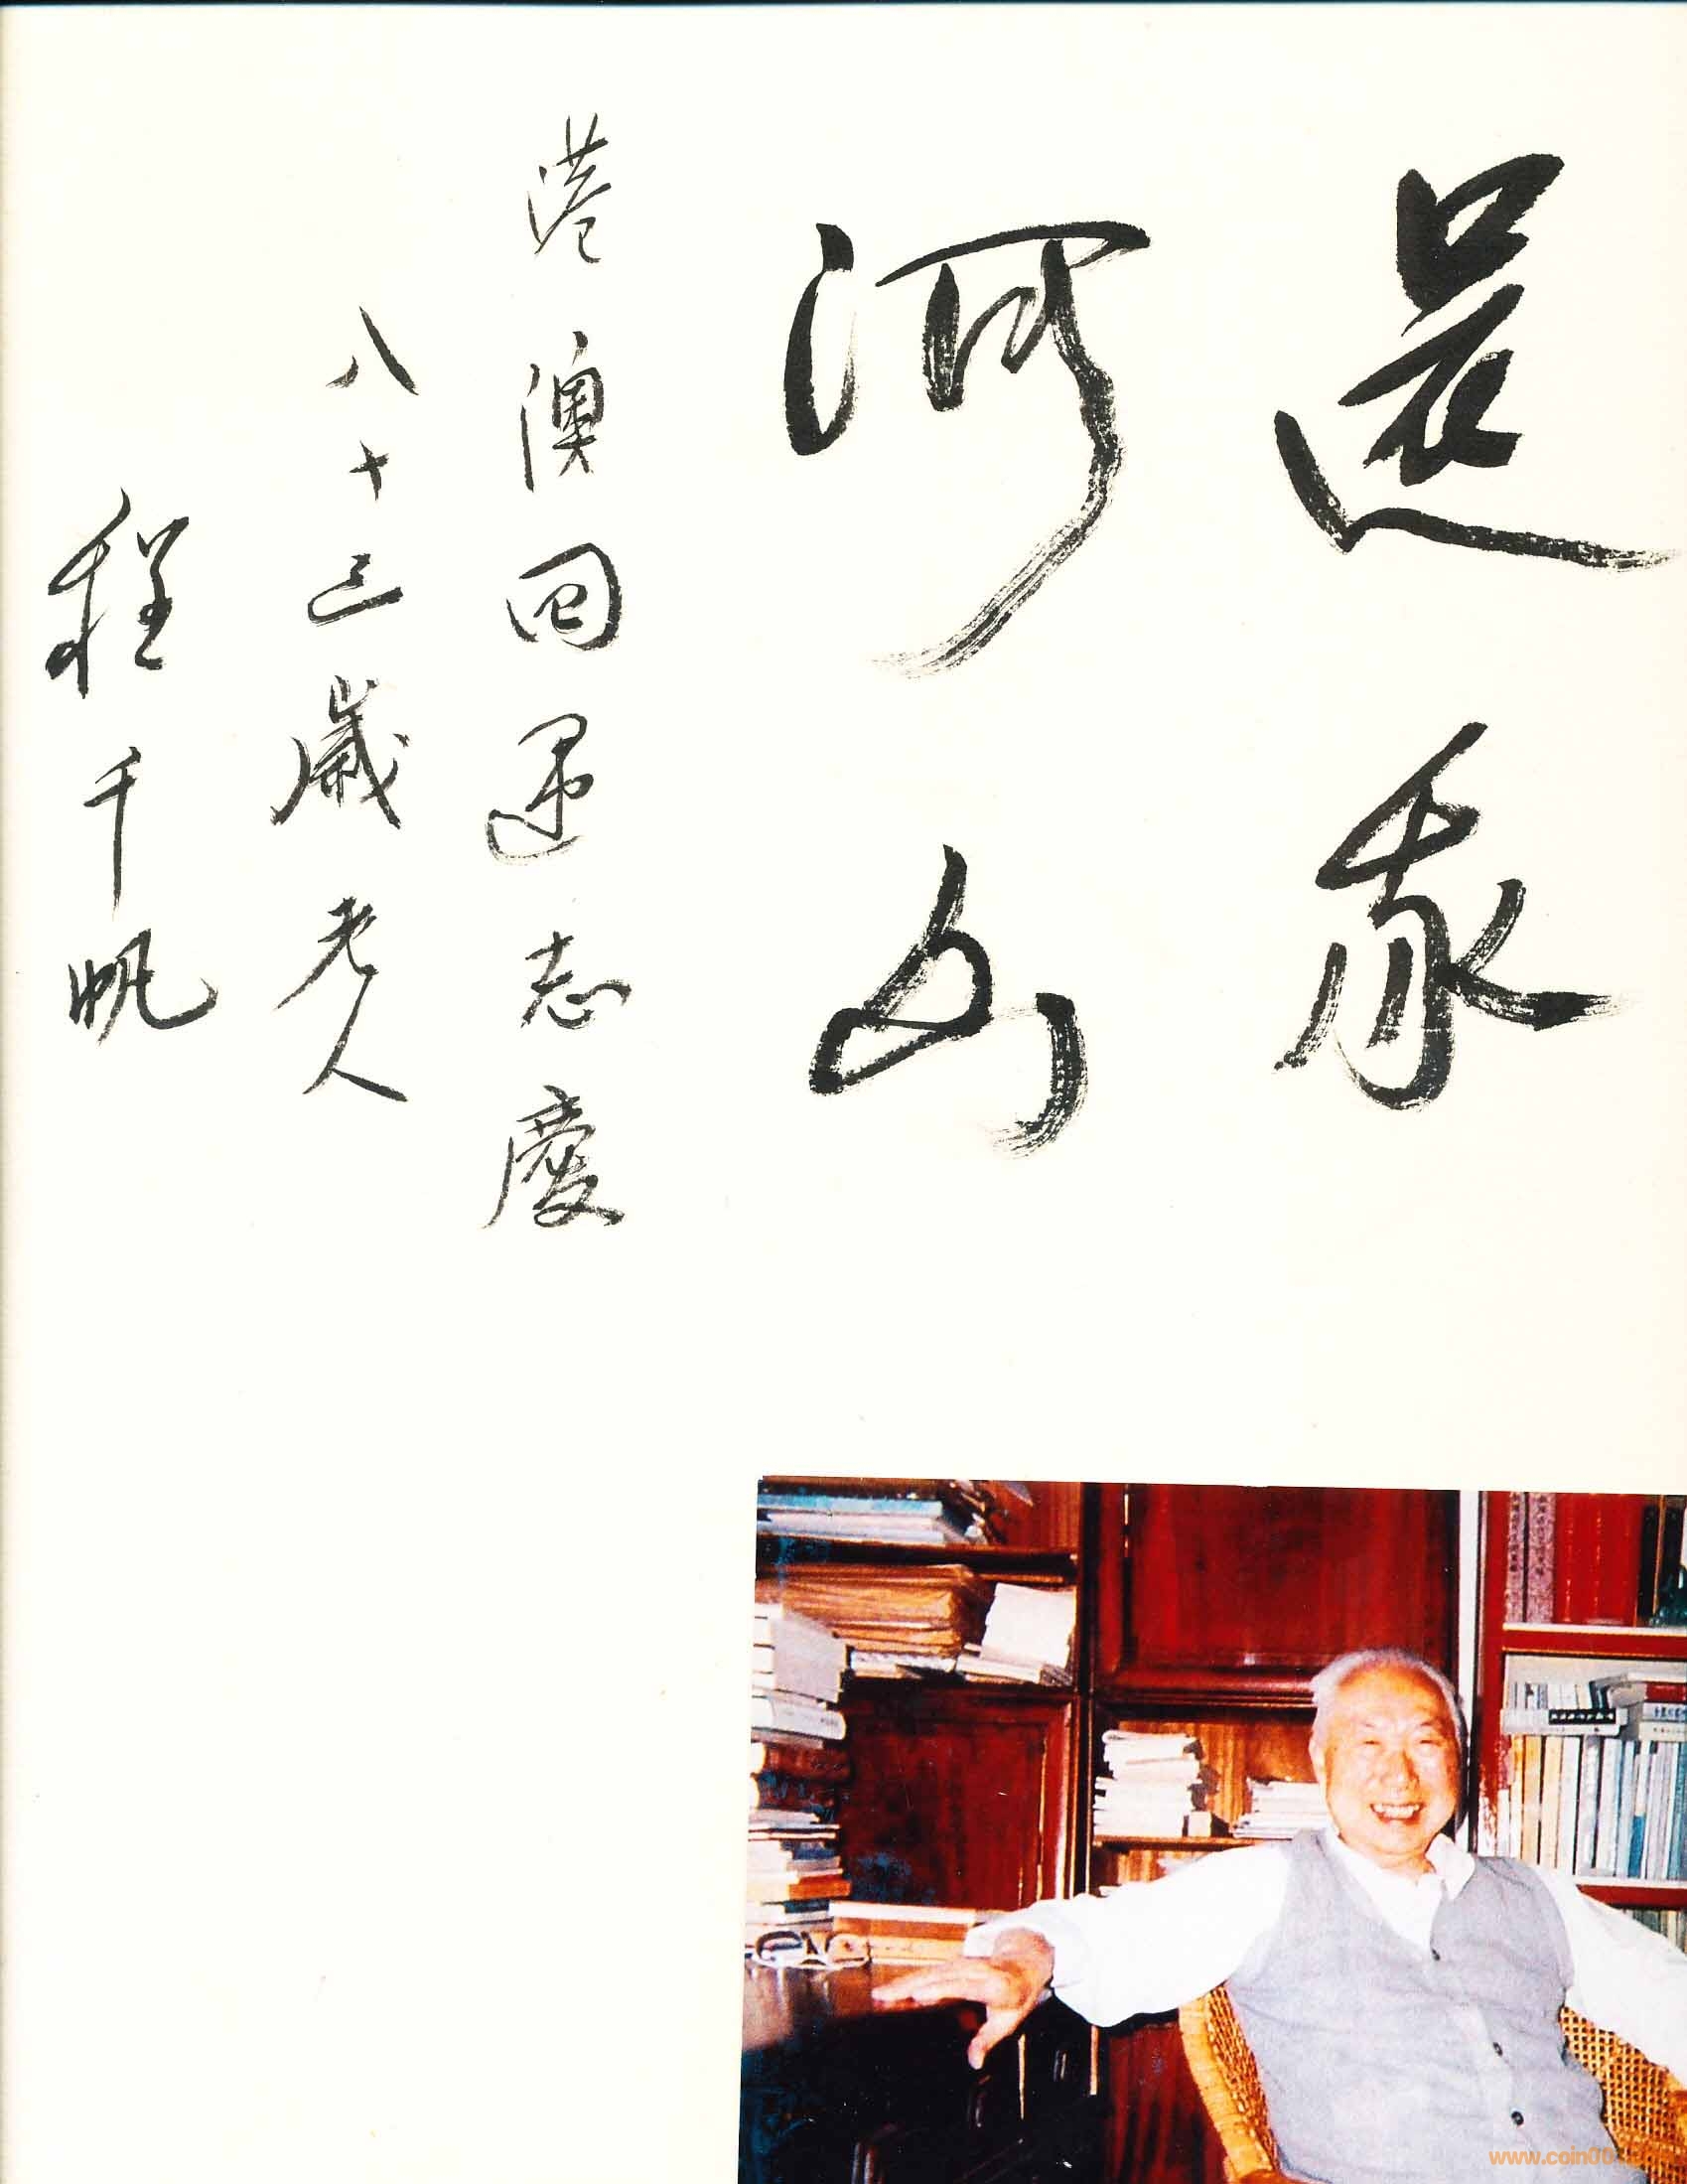 還我
河山
港澳回歸志慶
八十三歲老人
程千帆